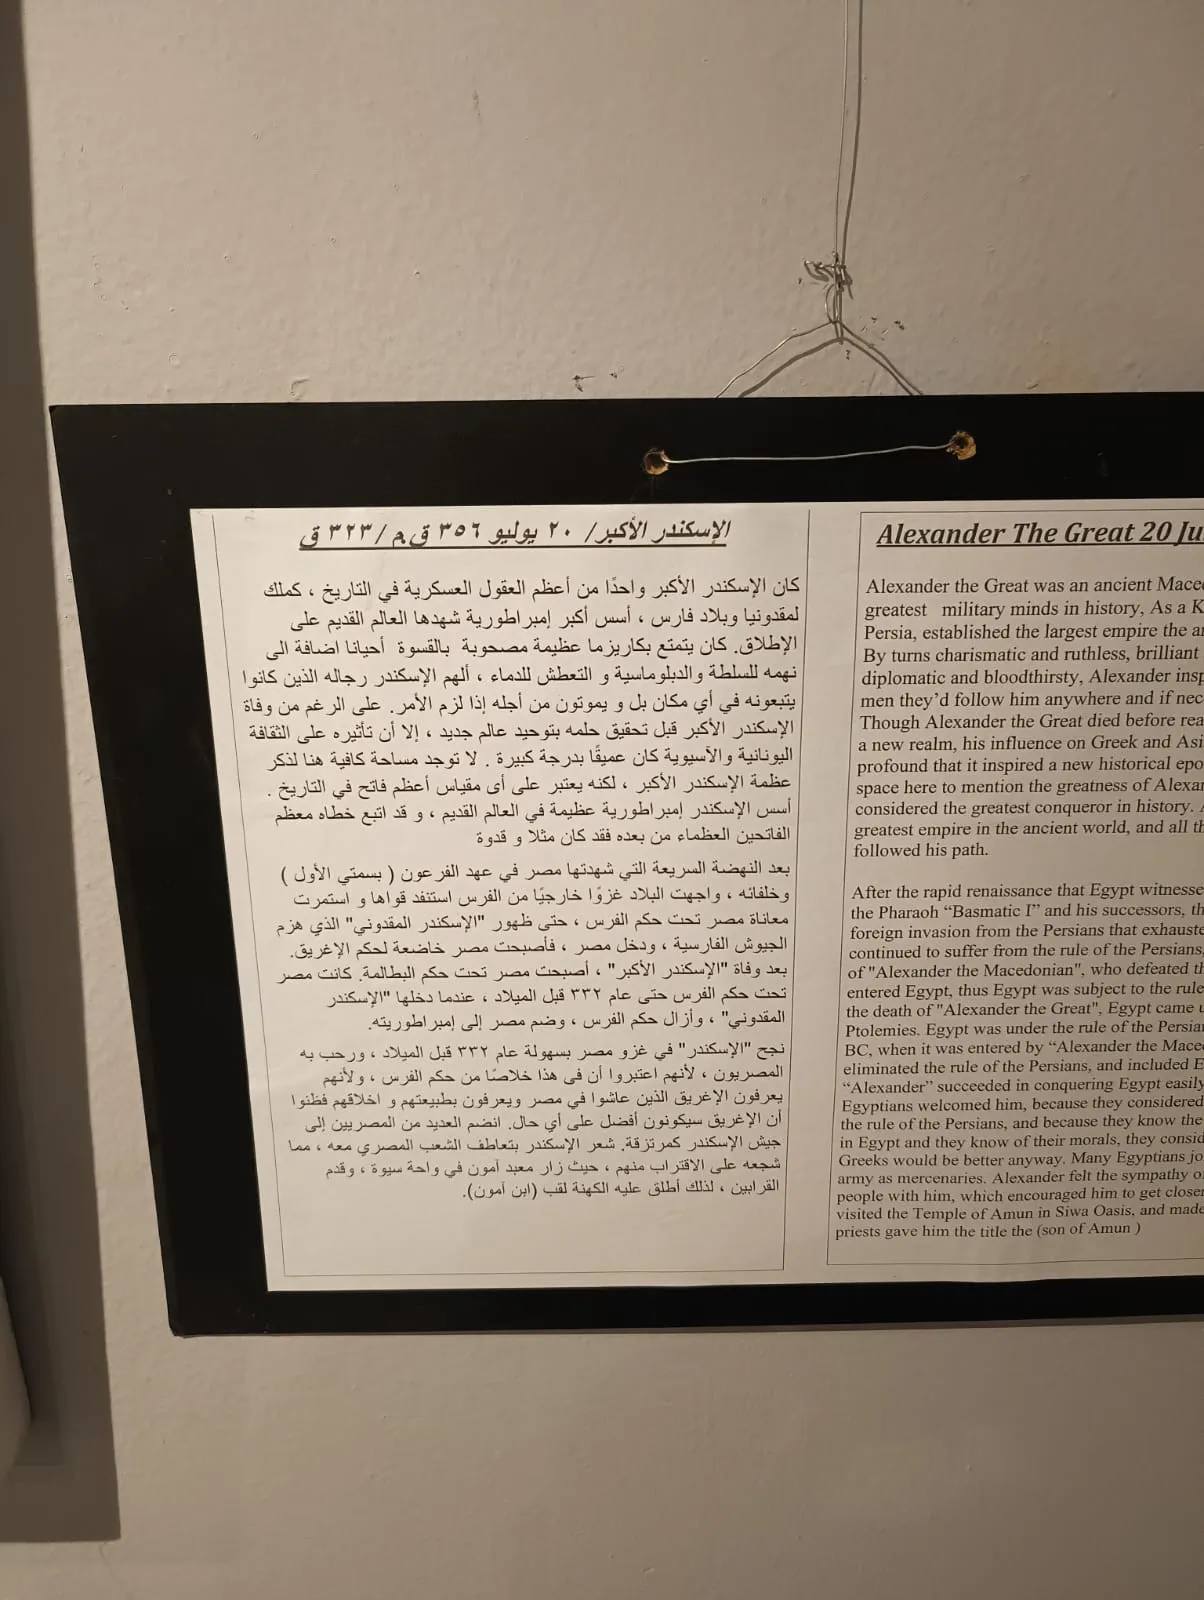 الإسكندر الأكبر/ ٢٠ يوليو ٣٥٦ ق.م /٣٢٣ ق
كان الإسكندر الأكبر واحدًا من أعظم العقول العسكرية في التاريخ ، كملك
لمقدونيا وبلاد فارس ، أسس أكبر إمبراطورية شهدها العالم القديم على
الإطلاق. كان يتمتع بكاريزما عظيمة مصحوبة بالقسوة أحيانا اضافة الى
نهمه للسلطة والدبلوماسية و التعطش للدماء ، ألهم الإسكندر رجاله الذين كانوا
يتبعونه في أي مكان بل و يموتون من أجله إذا لزم الأمر. على الرغم من وفاة
الإسكندر الأكبر قبل تحقيق حلمه بتوحيد عالم جديد ، إلا أن تأثيره على الثقافة
اليونانية والآسيوية كان عميقًا بدرجة كبيرة . لا توجد مساحة كافية هنا لذكر
عظمة الإسكندر الأكبر ، لكنه يعتبر على أى مقياس أعظم فاتح في التاريخ .
أسس الإسكندر إمبراطورية عظيمة في العالم القديم ، و قد اتبع خطاه معظم
الفاتحين العظماء من بعده فقد كان مثلا و قدوة
بعد النهضة السريعة التي شهدتها مصر في عهد الفرعون ( بسمتي الأول )
وخلفائه ، واجهت البلاد غزوًا خارجيًا من الفرس استنفد قواها و استمرت
معاناة مصر تحت حكم الفرس ، حتى ظهور "الإسكندر المقدوني" الذي هزم
الجيوش الفارسية ، ودخل مصر ، فأصبحت مصر خاضعة لحكم الإغريق.
بعد وفاة "الإسكندر الأكبر" ، أصبحت مصر تحت حكم البطالمة. كانت مصر
تحت حكم الفرس حتى عام ٣٣٢ قبل الميلاد ، عندما دخلها "الإسكندر
المقدوني" ، وأزال حكم الفرس ، وضم مصر إلى إمبراطوريته.
نجح "الإسكندر" في غزو مصر بسهولة عام ٣٣٢ قبل الميلاد ، ورحب به
المصريون ، لأنهم اعتبروا أن فى هذا خلاصًا من حكم الفرس ، ولأنهم
يعرفون الإغريق الذين عاشوا في مصر ويعرفون بطبيعتهم و اخلاقهم فظنوا
أن الإغريق سيكونون أفضل على أي حال. انضم العديد من المصريين إلى
جيش الإسكندر كمرتزقة. شعر الإسكندر بتعاطف الشعب المصري معه ، مما
شجعه على الاقتراب منهم ، حيث زار معبد آمون في واحة سيوة ، وقدم
القرابين ، لذلك أطلق عليه الكهنة لقب (ابن آمون).
Alexander The Great 20 Ju
Alexander the Great was an ancient Mace
greatest military minds in history, As a K
Persia, established the largest empire the a
By turns charismatic and ruthless, brilliant
diplomatic and bloodthirsty, Alexander insp
men they'd follow him anywhere and if nec
Though Alexander the Great died before rea
a new realm, his influence on Greek and Asi
profound that it inspired a new historical epo
space here to mention the greatness of Alexa
considered the greatest conqueror in history.
greatest empire in the ancient world, and all th
followed his path.
After the rapid renaissance that Egypt witnesse
the Pharaoh “Basmatic I” and his successors, th
foreign invasion from the Persians that exhauste
continued to suffer from the rule of the Persians,
of "Alexander the Macedonian", who defeated th
entered Egypt, thus Egypt was subject to the rule
the death of "Alexander the Great", Egypt came u
Ptolemies. Egypt was under the rule of the Persia
BC, when it was entered by “Alexander the Mace
eliminated the rule of the Persians, and included E
“Alexander” succeeded in conquering Egypt easily
Egyptians welcomed him, because they considered
the rule of the Persians, and because they know the
in Egypt and they know of their morals, they consid
Greeks would be better anyway. Many Egyptians jo
army as mercenaries. Alexander felt the sympathy o
people with him, which encouraged him to get closer
visited the Temple of Amun in Siwa Oasis, and made
priests gave him the title the (son of Amun )